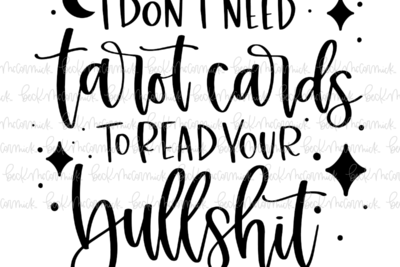 I DON'T NEED
tarot cards
TO READ YOUR
bullshit